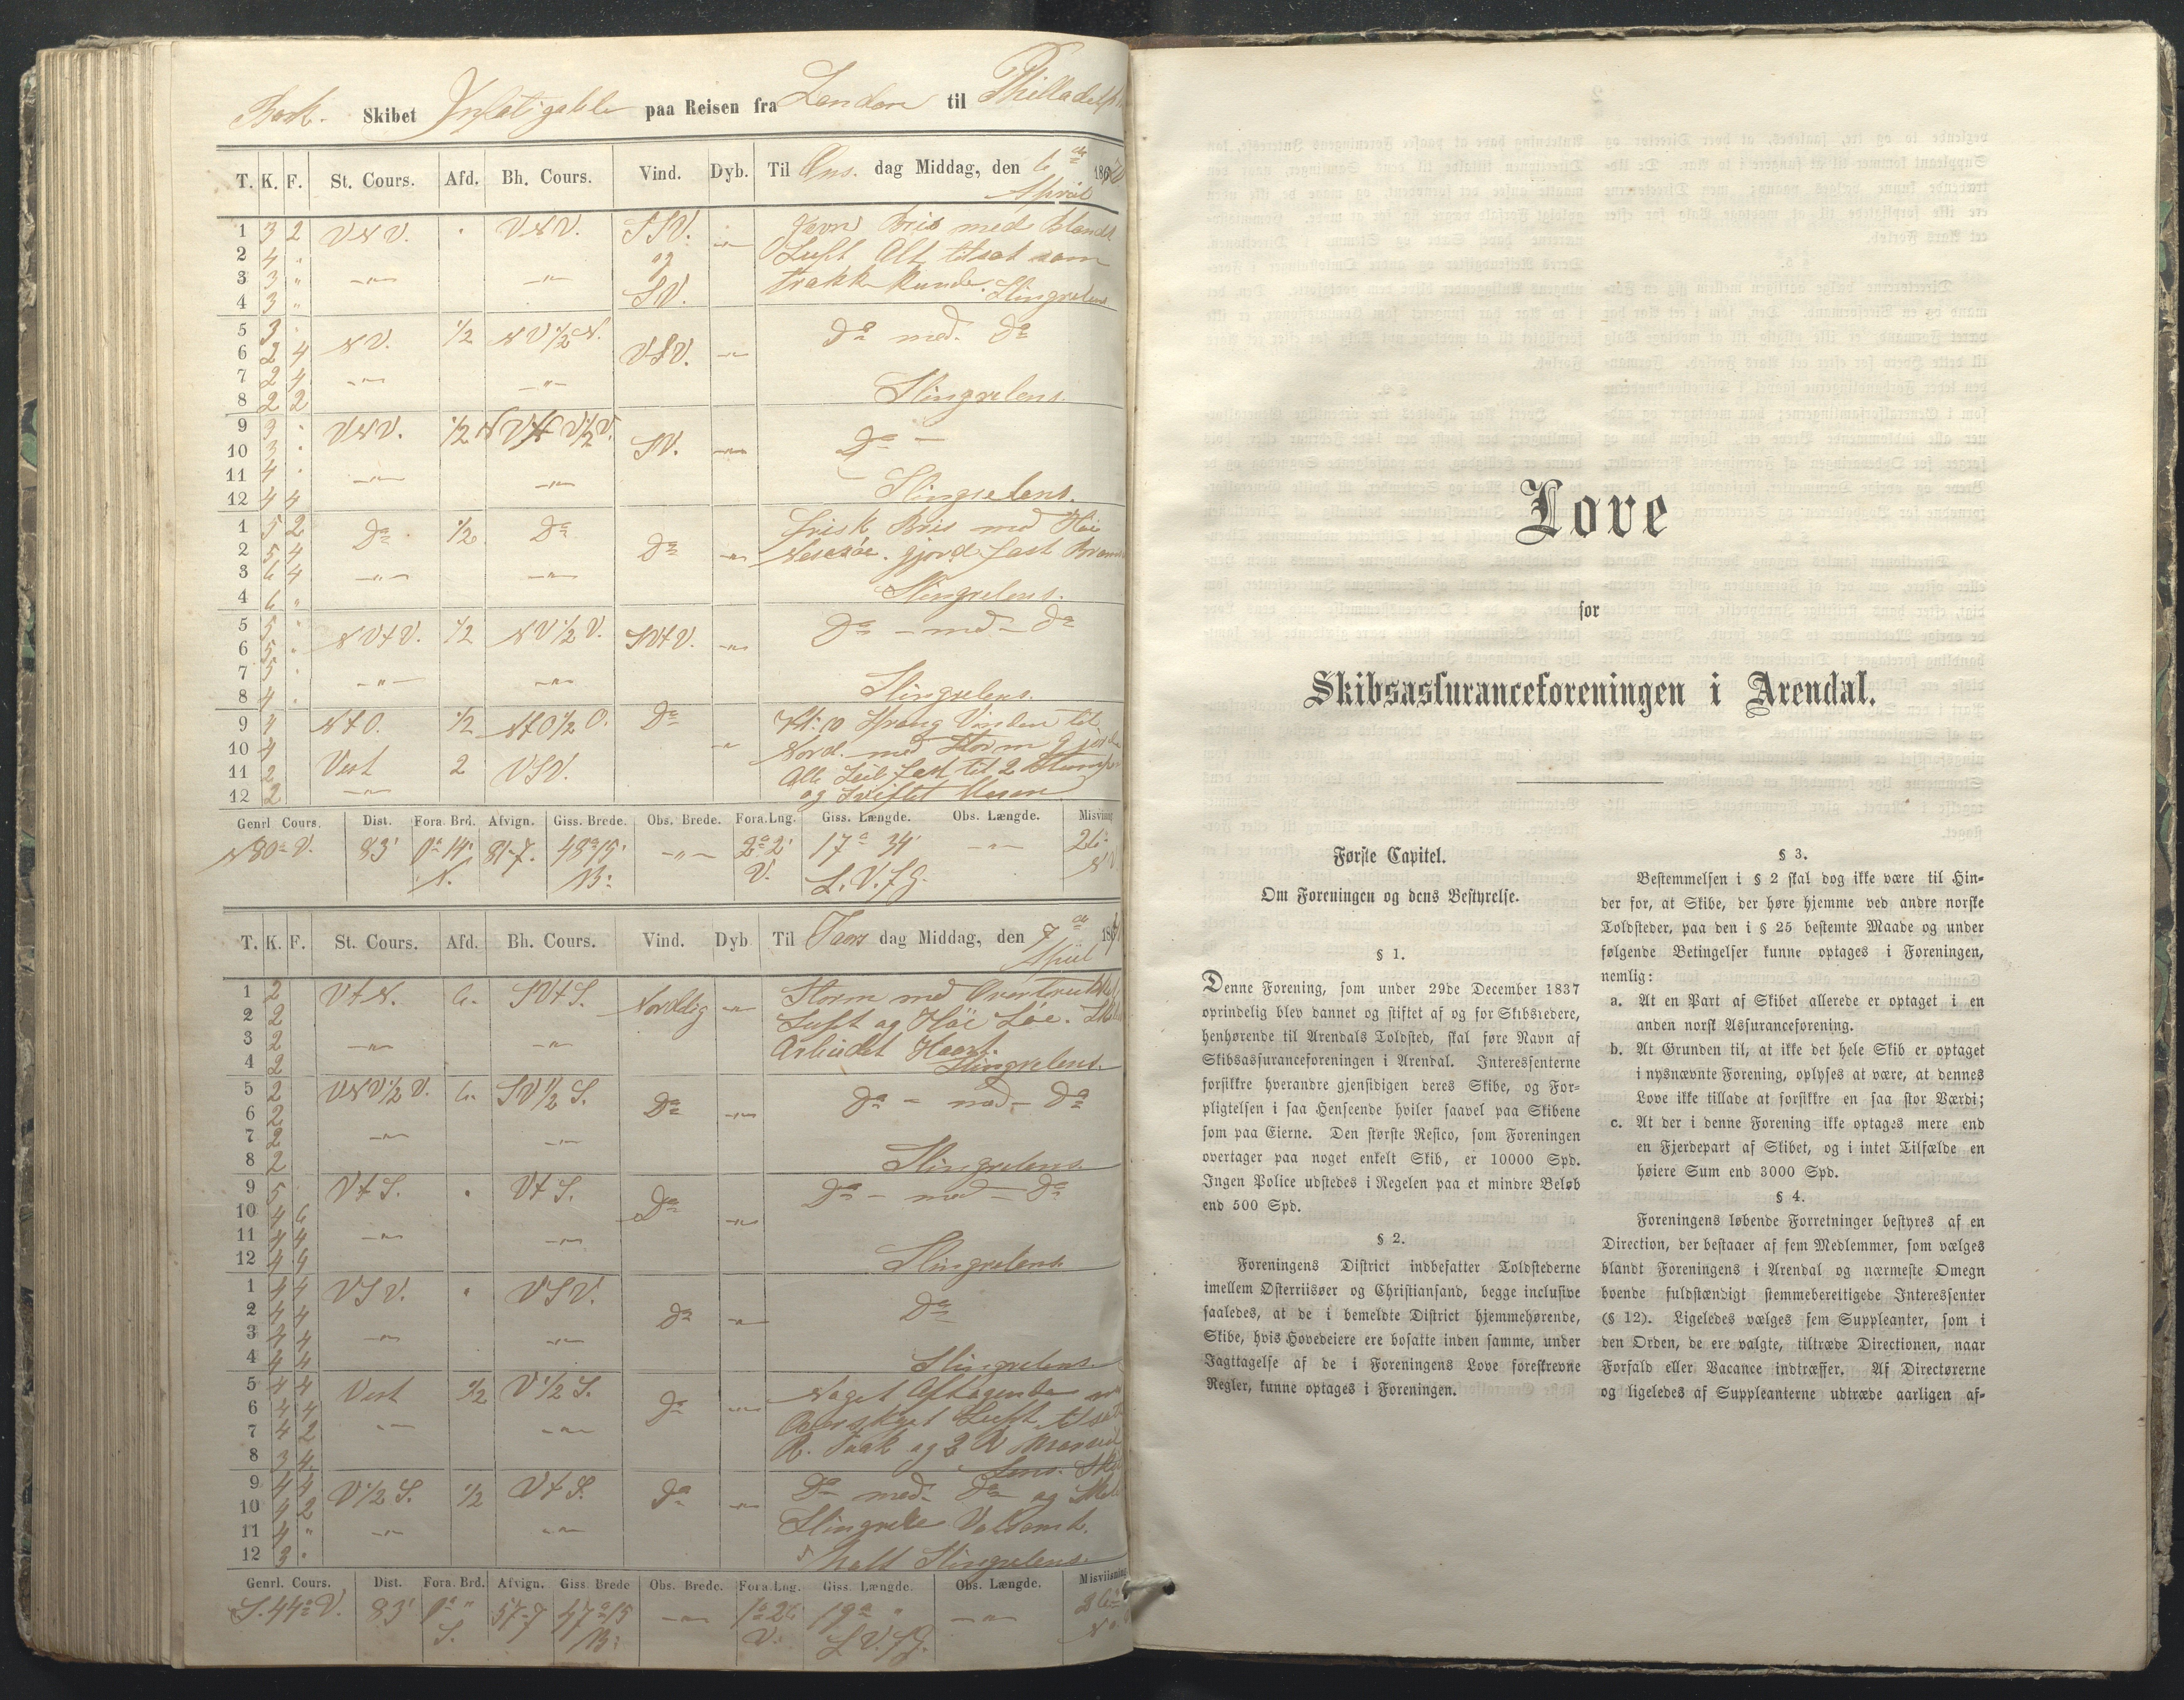 Bark. Skibet Infatigable paa Reisen fra London til Philladelphia
T. K. F. St. Cours. Afd. Bh. Cours. Vind. Dyb. Til Ons. dag Middag, den 6de April 187
1 3 2 VNV. " VNV. SSV. Jevn Bris med Blandt
2 4 " og Luft Alt tilsat som
3 3 " —"— —"— trække kunde. Slingrelens
4 3 " SV.
5 3 " NV. 1/2 NV 1/2 N. Da med. Da
6 2 4 VSV. —"—
7 2 4 —"— —"—
8 2 2 Slingrelens.
9 3 " VNV. 1/2 Da —
10 3 " SV. —"—
11 4 " —"— —"—
12 4 4 Slingrelens.
1 5 2 Da 1/2 Da frisk Bris med Høi
2 5 4 Da —"— gjord fast
3 6 4 —"— —"—
4 6 " Slingrelens.
5 5 " NVtV. 1/2 NV 1/2 V. SVtV. —"— Da — med — Da
6 5 "
7 5 " —"— —"—
8 4 " Slingrelens.
9 4 NtO. 1/2 NtO 1/2 O. Da Kl: 10 Sprang Vinden til
10 4 Nord. med Storm gjorde
11 2 Vest 2 VSV. Alle Seil fast til 2 Stumps
12 2 —"— og Sviftet Mesan
Genrl. Cours. Dist. Fora. Brd. Afvign. Giss. Brede. Obs. Brede. Fora.Lng. Giss. Længde. Obs. Længde. Misvisning
N 80° V. 83' 0° 14' 81-7. 48° 15' —"— 2° 2' 17° 34' —"— 26°
N. B: V. L. V. f G. NV
T. K. F. St. Cours. Afd. Bh. Cours. Vind. Dyb. Til Tors dag Middag, den 7de April 187
1 2 VtN. 6. SVtS. Nordlig —"— Storm med Overtrukket
2 2 Luft og Høi Søe.
3 2 —"— —"— Arbeidet Haart.
4 2 Slingrelens.
5 2 VNV 1/2 V. 6. SV 1/2 S. Da —"— Da — med — Da
6 2
7 2 —"— —"—
8 2 Slingrelens.
9 5 VtS. " VtS. Da —"— Da — med — Da
10 4 6
11 4 4 —"— —"—
12 4 4 Slingrelens.
1 4 4 VSV. " VSV. Da —"— Da
2 4 4
3 4 4 —"— —"—
4 4 4 Slingrelens.
5 4 4 Vest 1/2 V 1/2 S. Da —"— Noget Aftagende
6 4 4 Overskyet Luft tilsat
7 4 2 —"— —"— og 2 R Mersseil
8 3 4 Lens.
9 4 4 V 1/2 S. 1/2 VtS. Da —"— Da med. Da og
10 4 2 Slingrede Voldsomt.
11 4 " —"— —"—
12 3 " holt Slingrelens.
Genrl. Cours. Dist. Fora. Brd. Afvign. Giss. Brede Obs. Brede. Fora.Lng. Giss. Længde. Obs. Længde. Misviisning
S. 44° V. 83' 1° " 57-7 47° 15 —"— 1° 26 19° " —"— 26°
S. B: V. L V. f G.
Love
for
Skibsassuranceforeningen i Arendal.
Første Capitel.
Om Foreningen og dens Bestyrelse.
§ 1.
Denne Forening, som under 29de December 1837
oprindelig blev dannet og stiftet af og for Skibsredere,
henhørende til Arendals Toldsted, skal føre Navn af
Skibsassuranceforeningen i Arendal. Interessenterne
forsikkre hverandre gjensidigen deres Skibe, og For-
pligtelsen i saa Henseende hviler saavel paa Skibene
som paa Eierne. Den største Resico, som Foreningen
overtager paa noget enkelt Skib, er 10000 Spd.
Ingen Police udstedes i Regelen paa et mindre Beløb
end 500 Spd.
§ 2.
Foreningens District indbefatter Toldstederne
imellem Østerriisøer og Christiansand, begge inclusive
saaledes, at de i bemeldte District hjemmehørende,
Skibe, hvis Hovedeiere ere bosatte inden samme, under
Iagttagelse af de i Foreningens Love foreskrevne
Regler, kunne optages i Foreningen.
§ 3.
Bestemmelsen i § 2 skal dog ikke være til Hin-
der for, at Skibe, der høre hjemme ved andre norske
Toldsteder, paa den i § 25 bestemte Maade og under
følgende Betingelser kunne optages i Foreningen,
nemlig:
a. At en Part af Skibet allerede er optaget i en
anden norsk Assuranceforening.
b. At Grunden til, at ikke det hele Skib er optaget
i nysnævnte Forening, oplyses at være, at dennes
Love ikke tillade at forsikkre en saa stor Værdi;
c. At der i denne Forening ikke optages mere end
en Fjerdepart af Skibet, og i intet Tilfælde en
høiere Sum end 3000 Spd.
§ 4.
Foreningens løbende Forretninger bestyres af en
Direction, der bestaaer af fem Medlemmer, som vælges
blandt Foreningens i Arendal og nærmeste Omegn
boende fuldstændigt stemmeberettigede Interessenter
(§ 12). Ligeledes vælges fem Suppleanter, som i
den Orden, de ere valgte, tiltræde Directionen, naar
Forfald eller Vacance indtræffer. Af Directørerne
og ligeledes af Suppleanterne udtræde aarligen af-